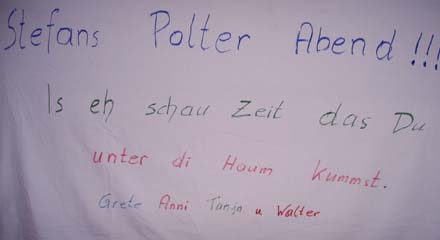 Stefans Polter Abend !!!
Is eh schau Zeit das Du
unter di Haum kummst.
Grete Anni Tanja u Walter